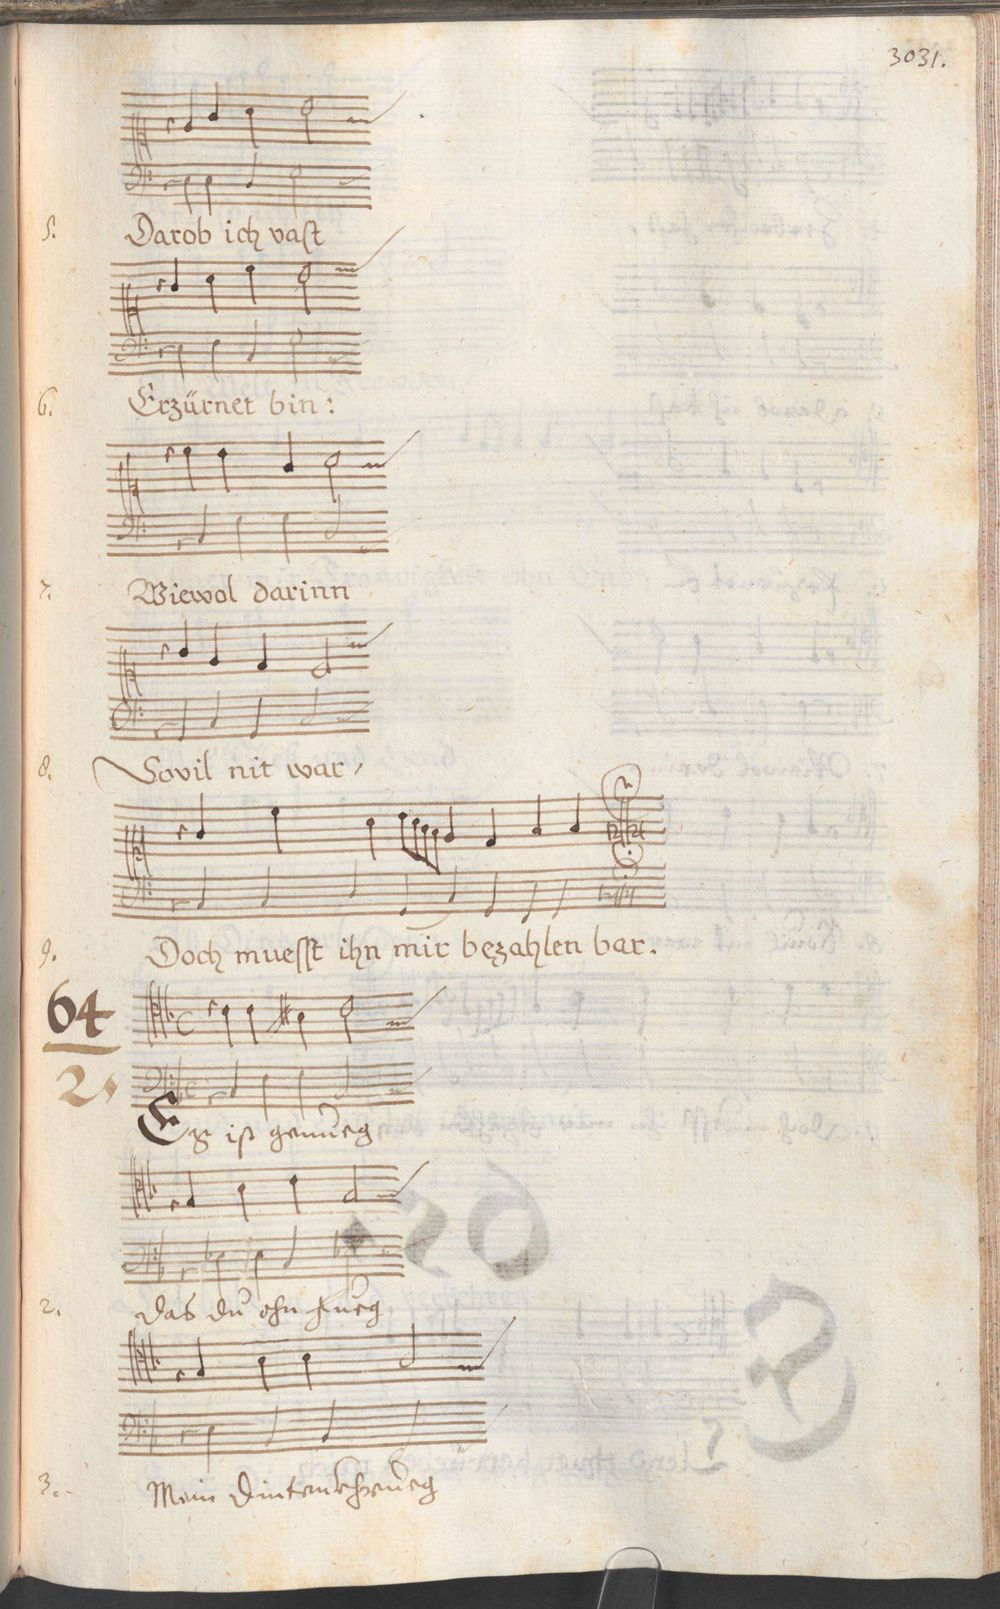 3031.
5. Darob ich vast
6. Erzürnet bin:
7. Wiewol darinn
8. Sovil nit war,
9. Doch muesst ihn mir bezahlen bar.
64
2.
Es ist genueg
2. das du ohn fueg
3. Mein Dintenkhrueg